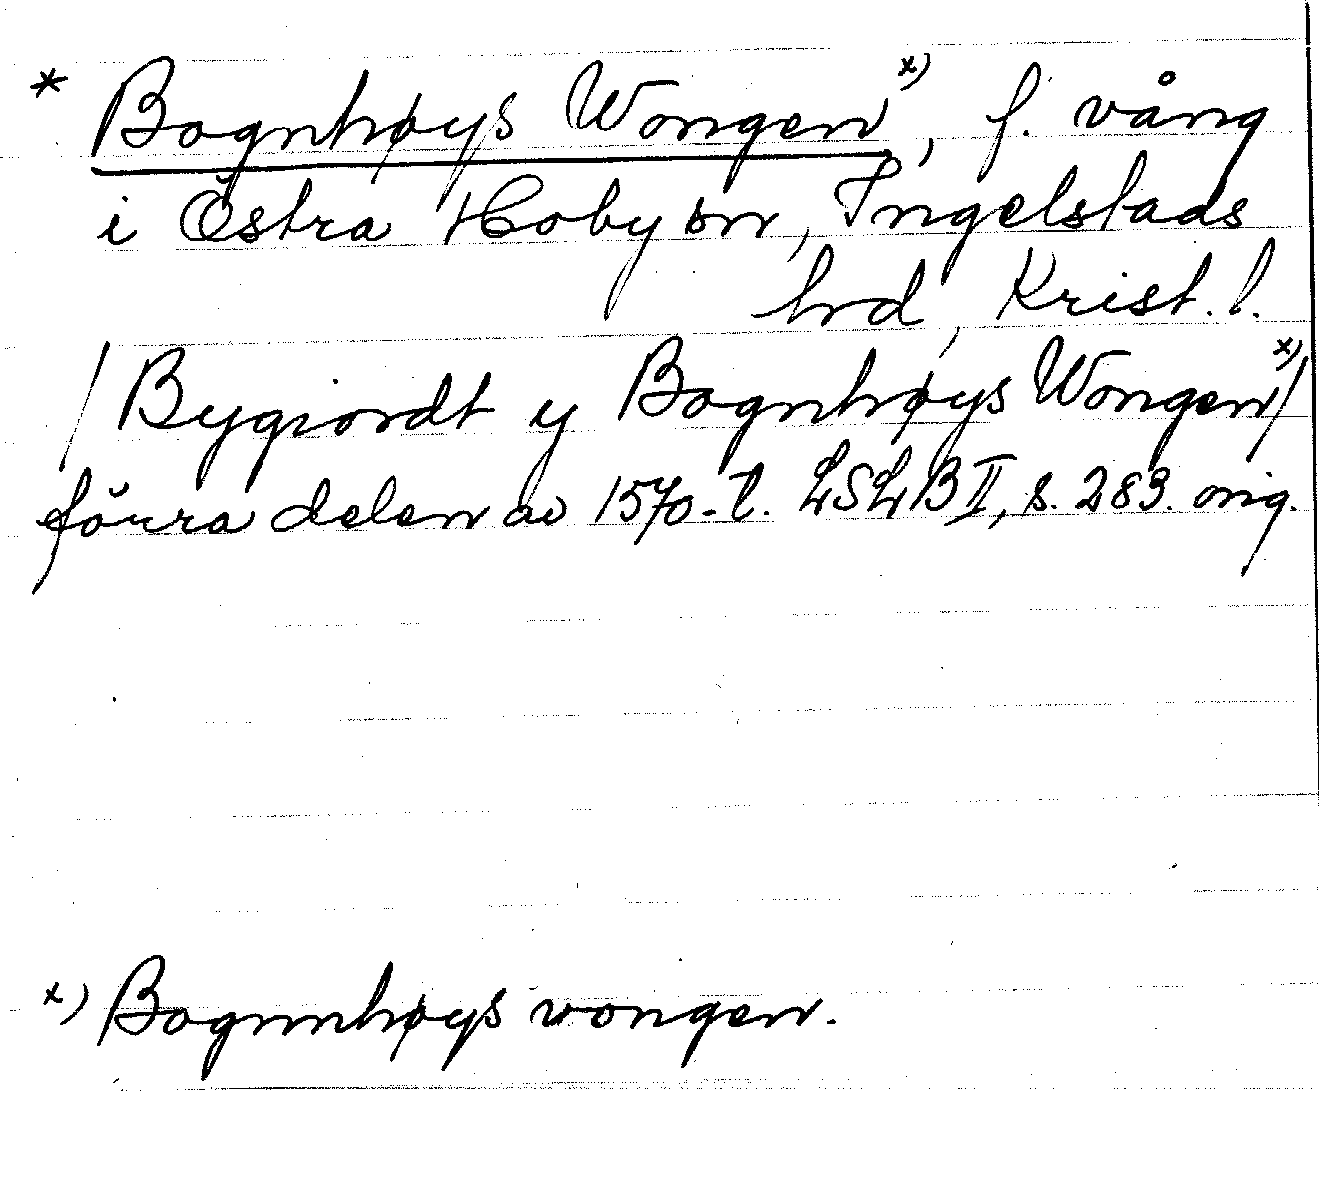 * Bognhøys Wongen x), f. vång
i Östra Hoby sn, Ingelstads
hrd, Krist. l.
/Bygiordt y Bognhøys Wongen x)/
förra delen av 1570-t. LSLB II, s. 283. orig.
x) Bognnhøys vongen.